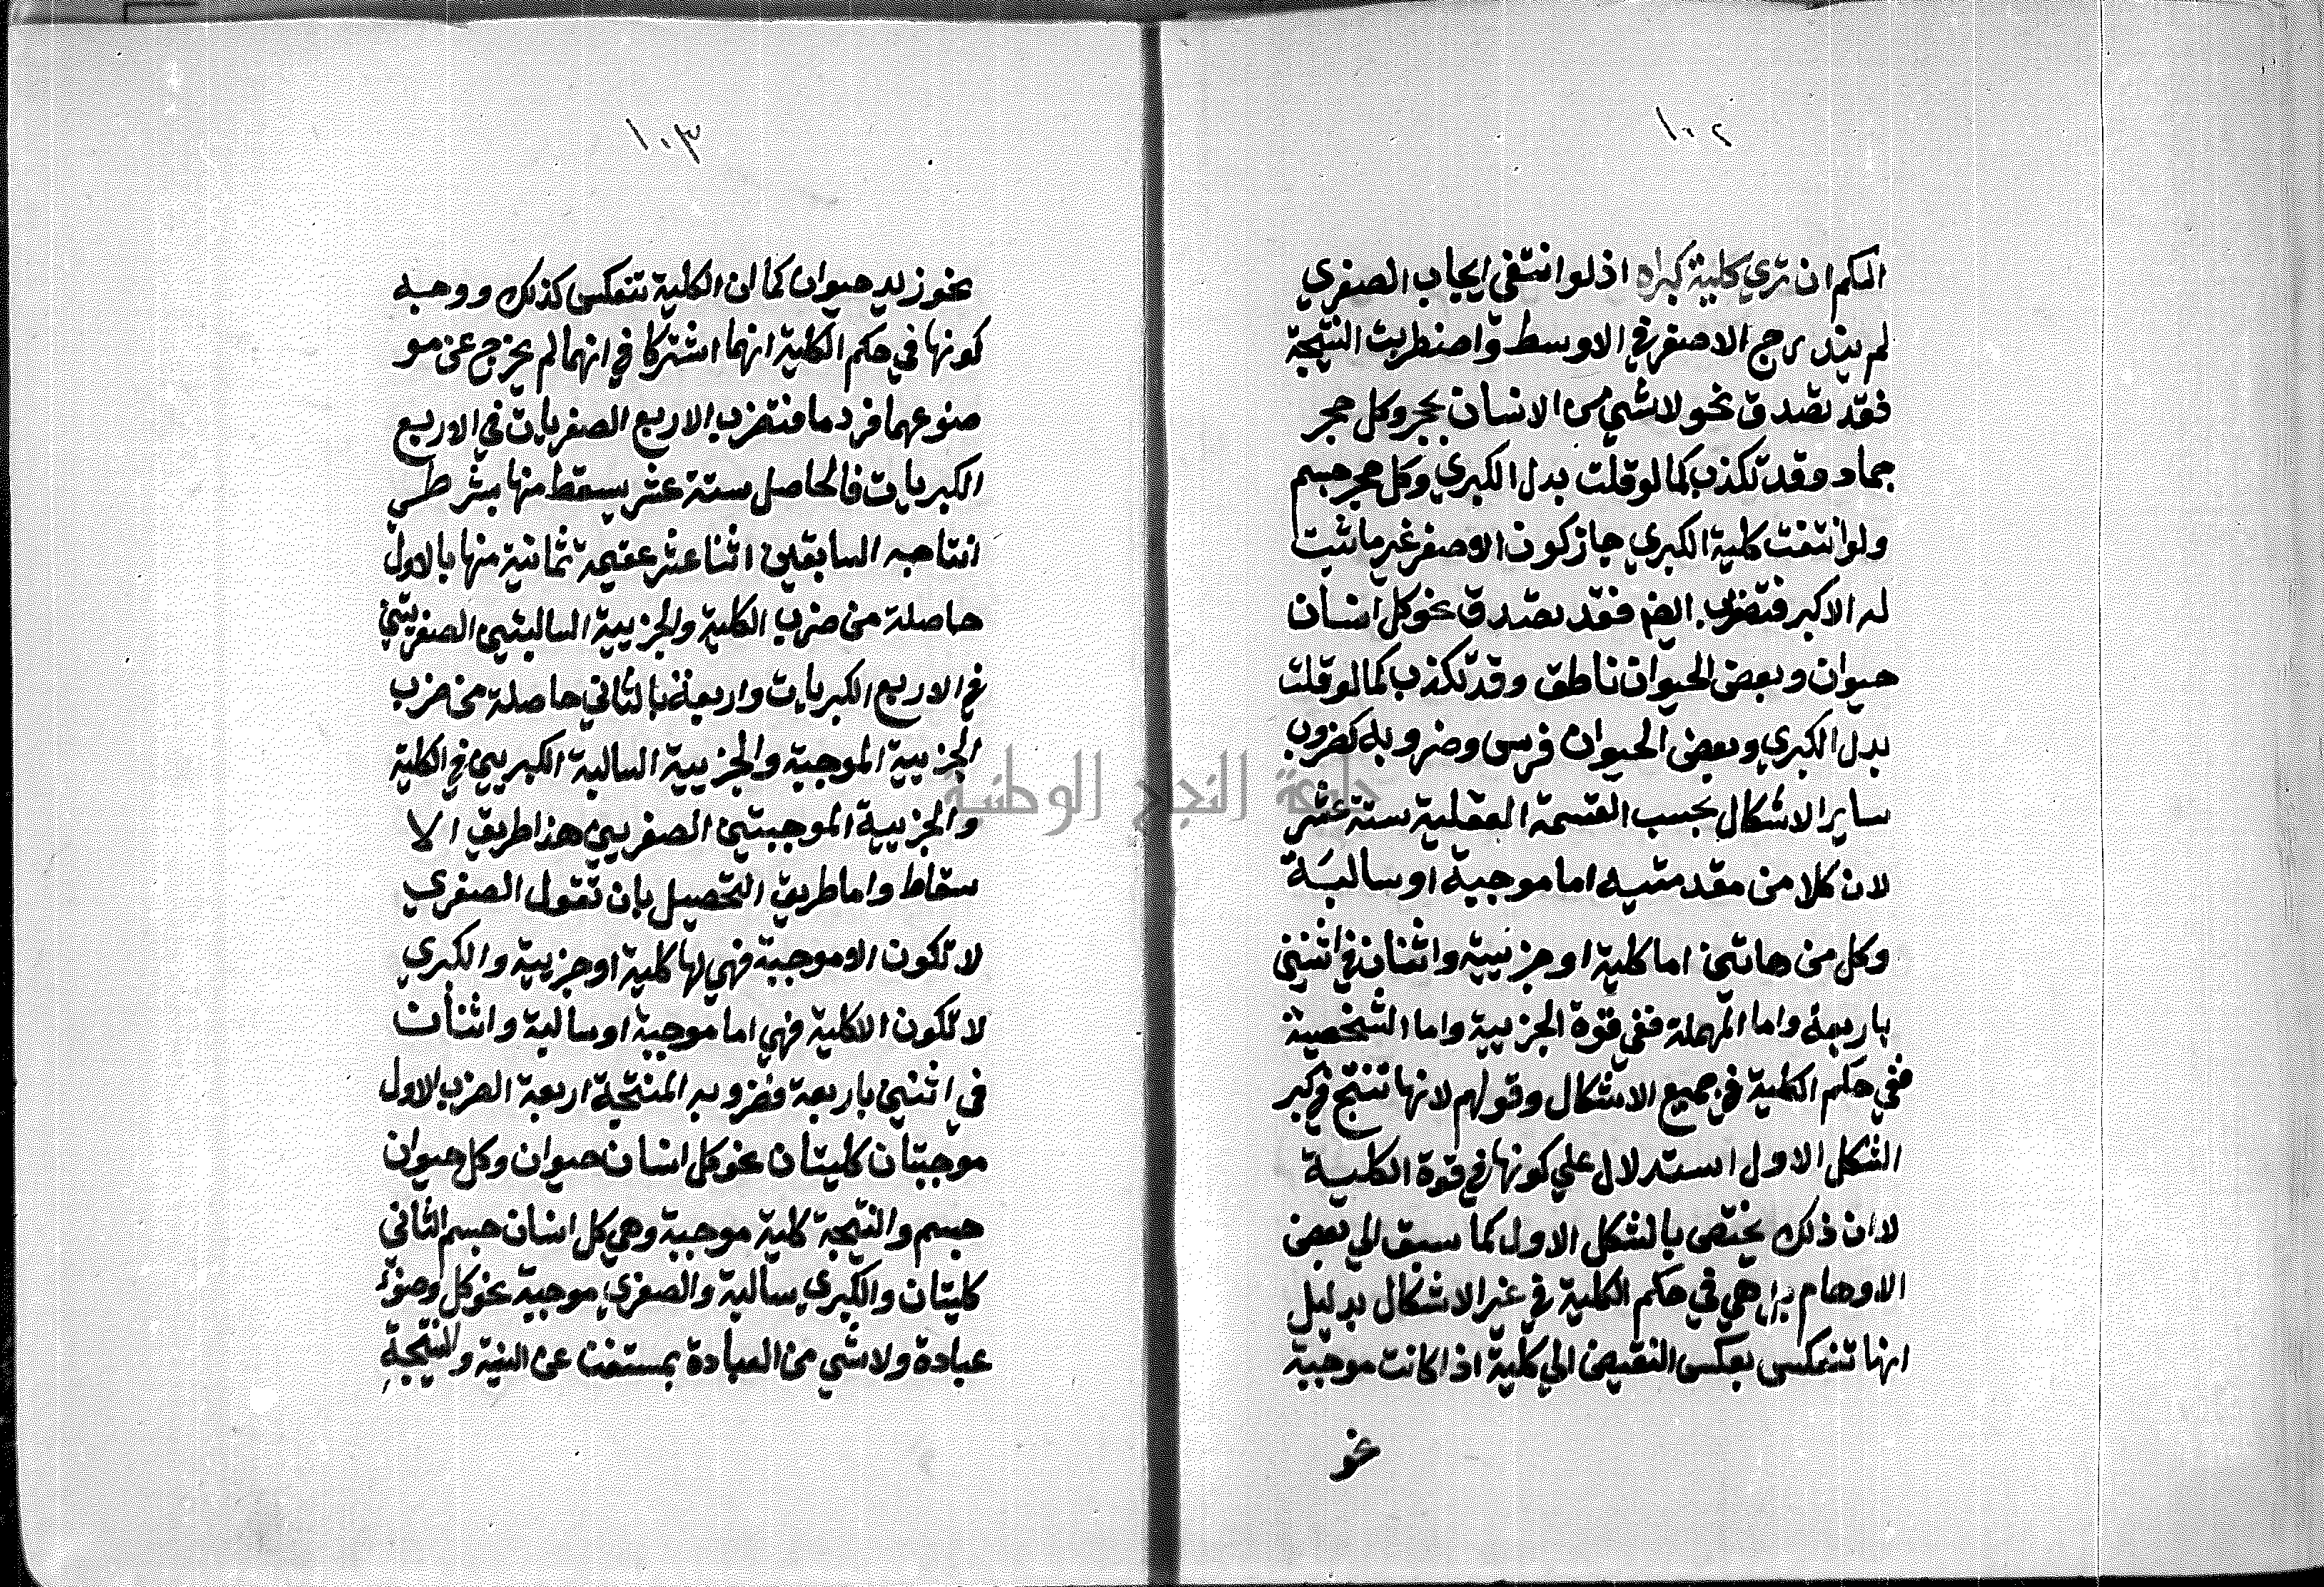 ١٠٢
الحكم ان تري كلية كبراه اذ لو انتفي ايجاب الصغري
لم يندرج الاصغر في الاوسط واضطربت النتيجة
فقد تصدق نحو لا شي من الانسان بحجر وكل حجر
جماد وقد تكذب كما لو قلت بدل الكبري وكل حجر جسم
ولو انتفت كلية الكبري جاز كون الاصغر غير ما ثبت
له الاكبر فتضطرب ايضا فقد تصدق نحو كل انسان
حيوان وبعض الحيوان ناطق وقد تكذب كما لو قلت
بدل الكبري وبعض الحيوان فرس وضروبه كضروب
ساير الاشكال بحسب القسمة العقلية ستة عشر
لان كلا من مقدمتيه اما موجبة او سالبة
وكل من هاتين اما كلية او جزيية واثنان في اثنين
باربعة واما المهملة ففي قوة الجزيية واما الشخصية
ففي حكم الكلية في جميع الاشكال وقولهم لانها تنتج في كبر
الشكل الاول استدلال علي كونها في قوة الكلية
لا ان ذلك يختص بالشكل الاول كما سبق الي بعض
الاوهام بل هي في حكم الكلية في غير الاشكال بدليل
انها تنعكس بعكس النقيض الي كلية اذا كانت موجبة
نحو
١٠٣
نحو زيد حيوان كما ان الكلية تنعكس كذلك ووجه
كونها في حكم الكلية انهما اشتركا في انهما لم يخرج عن مو
ضوعهما فرد ما فتضرب الاربع الصغريات في الاربع
الكبريات فالحاصل ستة عشر يسقط منها بشرطي
انتاجه السابقين اثنا عشر عقيمة ثمانية منها بالاول
حاصلة من ضرب الكلية والجزيية السالبتين الصغريتين
في الاربع الكبريات واربعة بالثاني حاصلة من ضرب
الجزيية الموجبة والجزيية السالبة الكبريين في الكلية
والجزيية الموجبتين الصغريين هذا طريق الا
سقاط واما طريق التحصيل بان تقول الصغري
لا تكون الا موجبة فهي لها كلية او جزيية والكبري
لا تكون الا كلية فهي اما موجبة او سالبة واثنان
في اثنين باربعة فضروبه المنتجة اربعة الضرب الاول
موجبتان كليتان نحو كل انسان حيوان وكل حيوان
جسم والنتيجة كلية موجبة وهي كل انسان جسم الثاني
كليتان والكبري سالبة والصغري موجبة نحو كل وضوء
عبادة ولا شي من العبادة بمستغن عن النية والنتيجة
جامعة النجاح الوطنية